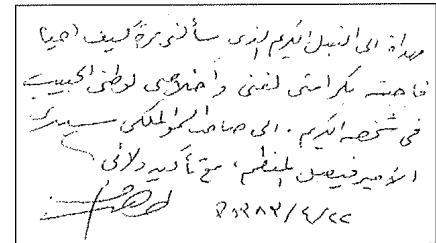 مهداة الى النبيل الكريم الذي سألني مرة كيف احيا
فأجبته بكرامتي لفني واخلاصي لوطني الحبيب
في شخصه الكريم. الى صاحب السمو الملكي سيدي
الأمير فيصل المعظم، مع تأكيد ولائي
١٩٨٣/٤/٢٢